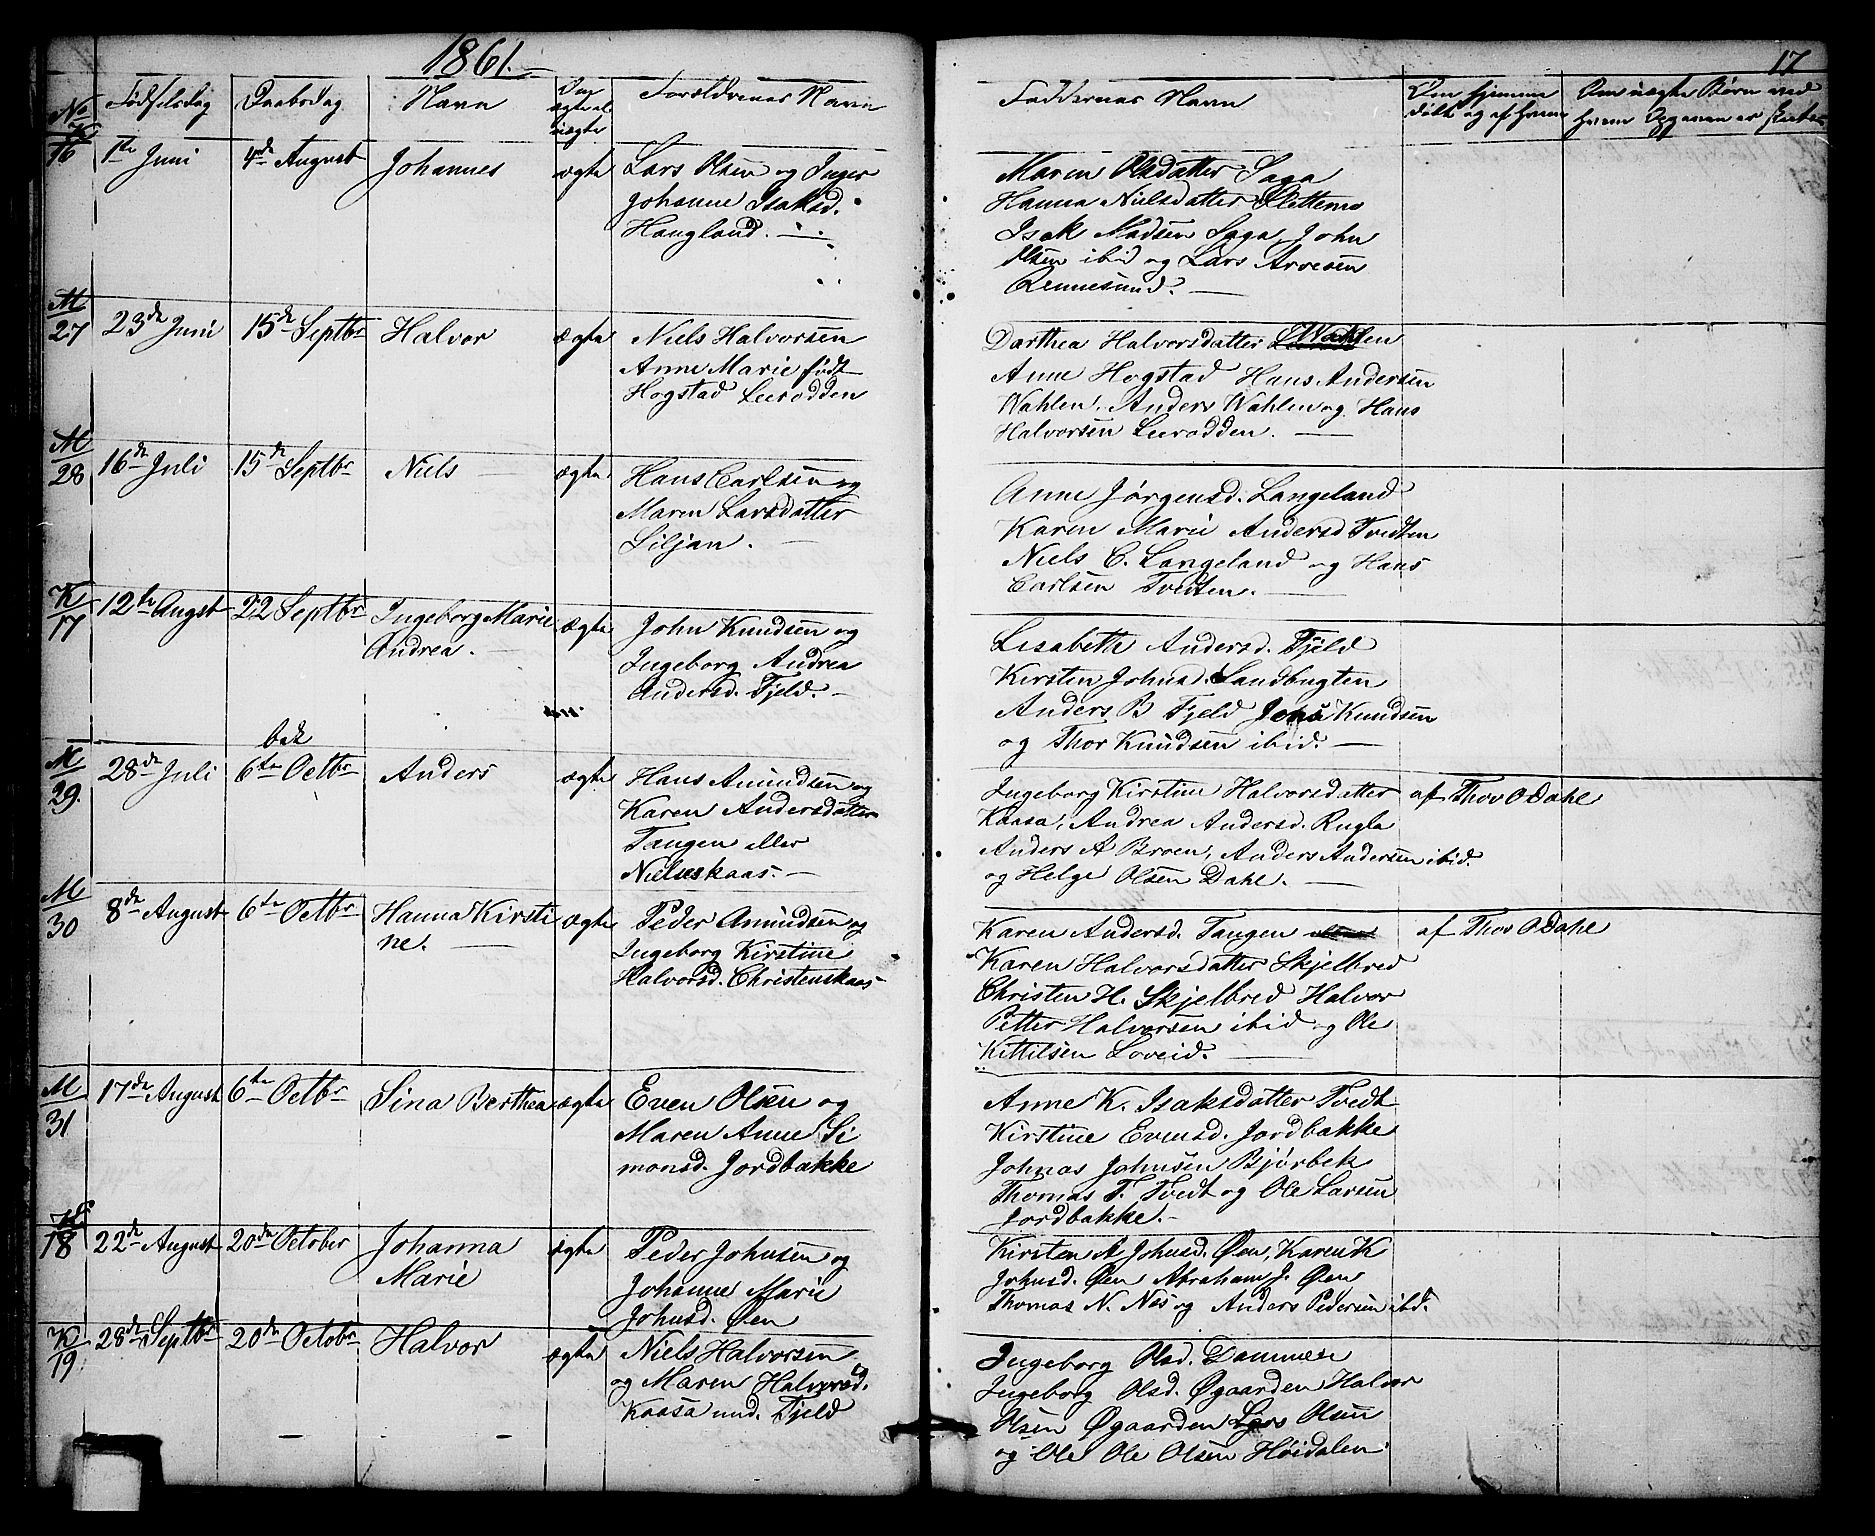 1861.
17
No Fødselsdag Daabsdag Navn Om ægte el. uægte Forældrenes Navn Faddernes Navn Om hjemmedøbt og af hvem Om uægte Børn ved hvem
K 16 1te Juni 4de August Johannes ægte
Lars Olsen og Inger
Johanne Isaksd.
Haugland.
Maren Olsdatter Saga
Hanna Nielsdatter Slettemo
Isak Madsen Saga, John
Olsen ibid og Lars Arvesen
Rennesund.
M 27 23de Juni 15de Septbr Halvor ægte
Niels Halvorsen
Anne Marie født
Hogstad Leerodden
Darthea Halvorsdatter Wahlen
Anne Hogstad Hans Andersen
Wahlen, Anders Wahlen og Hans
Halvorsen Leerodden.
M 28 16de Juli 15de Septbr Niels ægte
Hans Carlsen og
Maren Larsdatter
Siljan.
Anne Jørgensd. Langeland
Karen Marie Andersd Tvedten
Niels C. Langeland og Hans
Carlsen Tvedten.
K 17 12te Augst 22 Septbr Ingeborg Marie
Andrea. ægte
John Knudsen og
Ingeborg Andrea
Andersd. Fjeld.
Lisabeth Andersd. Fjeld
Kirsten Johnsd. Sandbugten
Anders B Fjeld Jens Knudsen
og Thor Knudsen ibid.
bek
M 29. 28de Juli 6te Octbr Anders ægte
Hans Amundsen og
Karen Andersdatter
Tangen eller
Nielseskaas.
Ingeborg Kirstine Halvorsdatter
Kaasa, Andrea Andersd. Rugla
Anders A Broen, Anders Andersen ibid.
og Helge Olsen Dahl.
af Thor O Dahl
M 30 8de August 6te Octbr Hanna Kirsti
ne. ægte
Peder Amundsen og
Ingeborg Kirstine
Halvorsd. Christenskaas
Karen Andersd. Tangen
Karen Halvorsdatter Skjelbred
Christen H. Skjelbred Halvor
Petter Halvorsen ibid og Ole
Kittilsen Loveid.
af Thor O Dahl
M 31 17de August 6te Octbr Sina Berthea ægte
Even Olsen og
Maren Anne Si
monsd. Jordbakke
Anne K. Isaksdatter Tvedt
Kirstine Evensd. Jordbakke
Johnas Johnsen Bjørbek
Thomas T. Tvedt og Ole Larsen
Jordbakke.
K 18 22de August 20de October Johanna
Marie ægte
Peder Johnsen og
Johanne Marie
Johnsd. Øen
Kirsten A Johnsd. Øen, Karen K
Johnsd. Øen Abraham J. Øen
Thomas N. Næs og Anders Pedersen ibd.
K 19. 28de Septbr 20de Octobr Halvor ægte
Niels Halvorsen
og Maren Halvorsd.
Kaasa und. Fjeld
Ingeborg Olsd. Dammen
Ingeborg Olsd. Øgaarden Halvor
Olsen Øgaarden Lars Olsen
og Ole Ole Olsen Høidalen